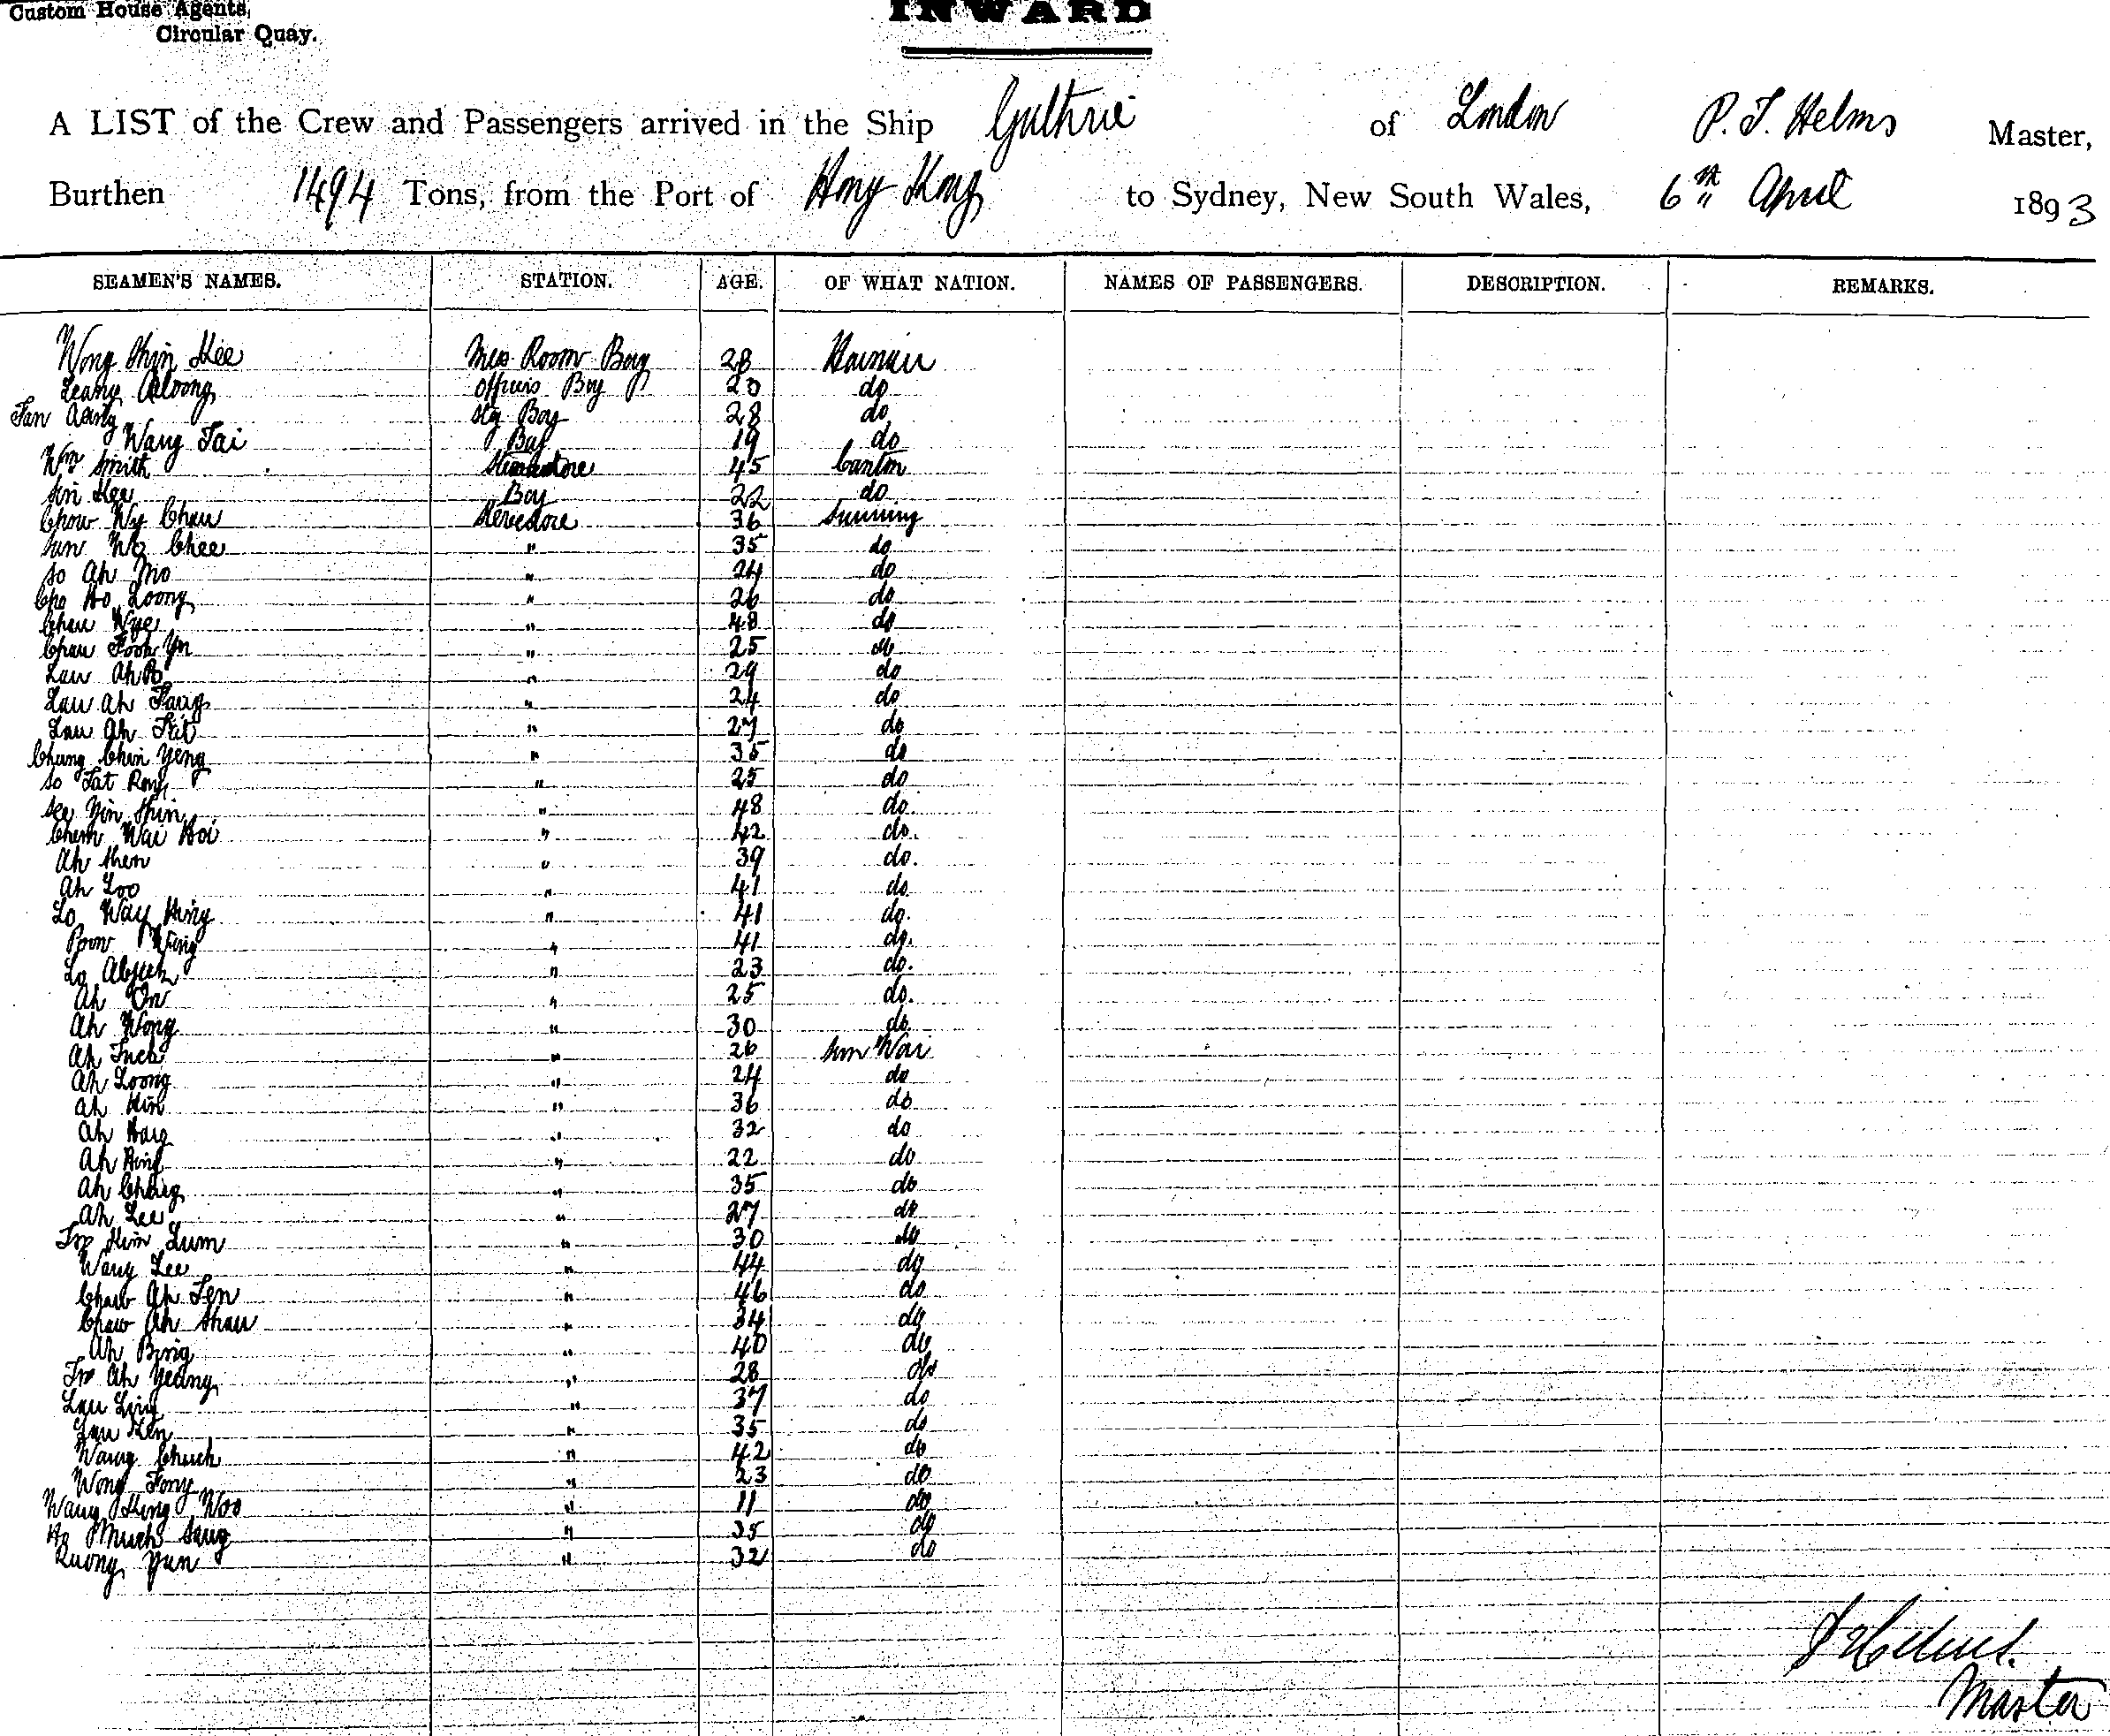 Custom House Agents,
Circular Quay.
INWARD
A LIST of the Crew and Passengers arrived in the Ship Guthrie of London P. T. Helms Master,
Burthen 1494 Tons, from the Port of Hong Kong to Sydney, New South Wales, 6th April 1893
SEAMEN'S NAMES. STATION. AGE. OF WHAT NATION. NAMES OF PASSENGERS. DESCRIPTION. REMARKS.
Wong Shin Kee Mess Room Boy 28 Hainan
Leang Aloong Officers Boy 23 do
Tan Aang Boy 28 do
Wang Tai 19 do
Wm Smith 45 Canton
Sin Kee Boy 22 do
Chow Wy Chau Stevedore 36 Sunning
Sun Wo Chee " 35 do
So Ah Mo " 24 do
Cho Ho Loong " 26 do
Chau Nye " 48 do
Chau Fook Yn " 25 do
Lau Ah Po " 29 do
Lau Ah Fang " 24 do
Lau Ah Kit " 27 do
Chung Chin Yeng " 35 do
So Tat Rong " 25 do
See Yin Shin " 48 do
Chem Wai Hoi " 42 do.
Ah Shen " 39 do.
Ah Loo " 41 do.
Lo Way Hing " 41 do.
Poon Wing " 41 do.
Lo " 23 do.
Ah On " 25 do.
Ah Wong " 30 do.
Ah " 26 Sun Wai
Ah Loong " 24 do
Ah Kin " 36 do
Ah Hang " 32 do
Ah Hing " 22 do
Ah Chang " 35 do
Ah Lee " 27 do
Kim Lum " 30 do
Wang Lee " 44 do
Chaw Ah Fen " 46 do
Chaw Ah Shau " 34 do
Ah Bing " 40 do
Ah Yeang " 28 do
Lau Ling " 37 do
Lau Ken " 35 do
Wang Chuck " 42 do
Wong Fong " 23 do
Wang King Woo " 11 do
Ho Much Sang " 35 do
Quong Yun " 32 do
Helms.
Master